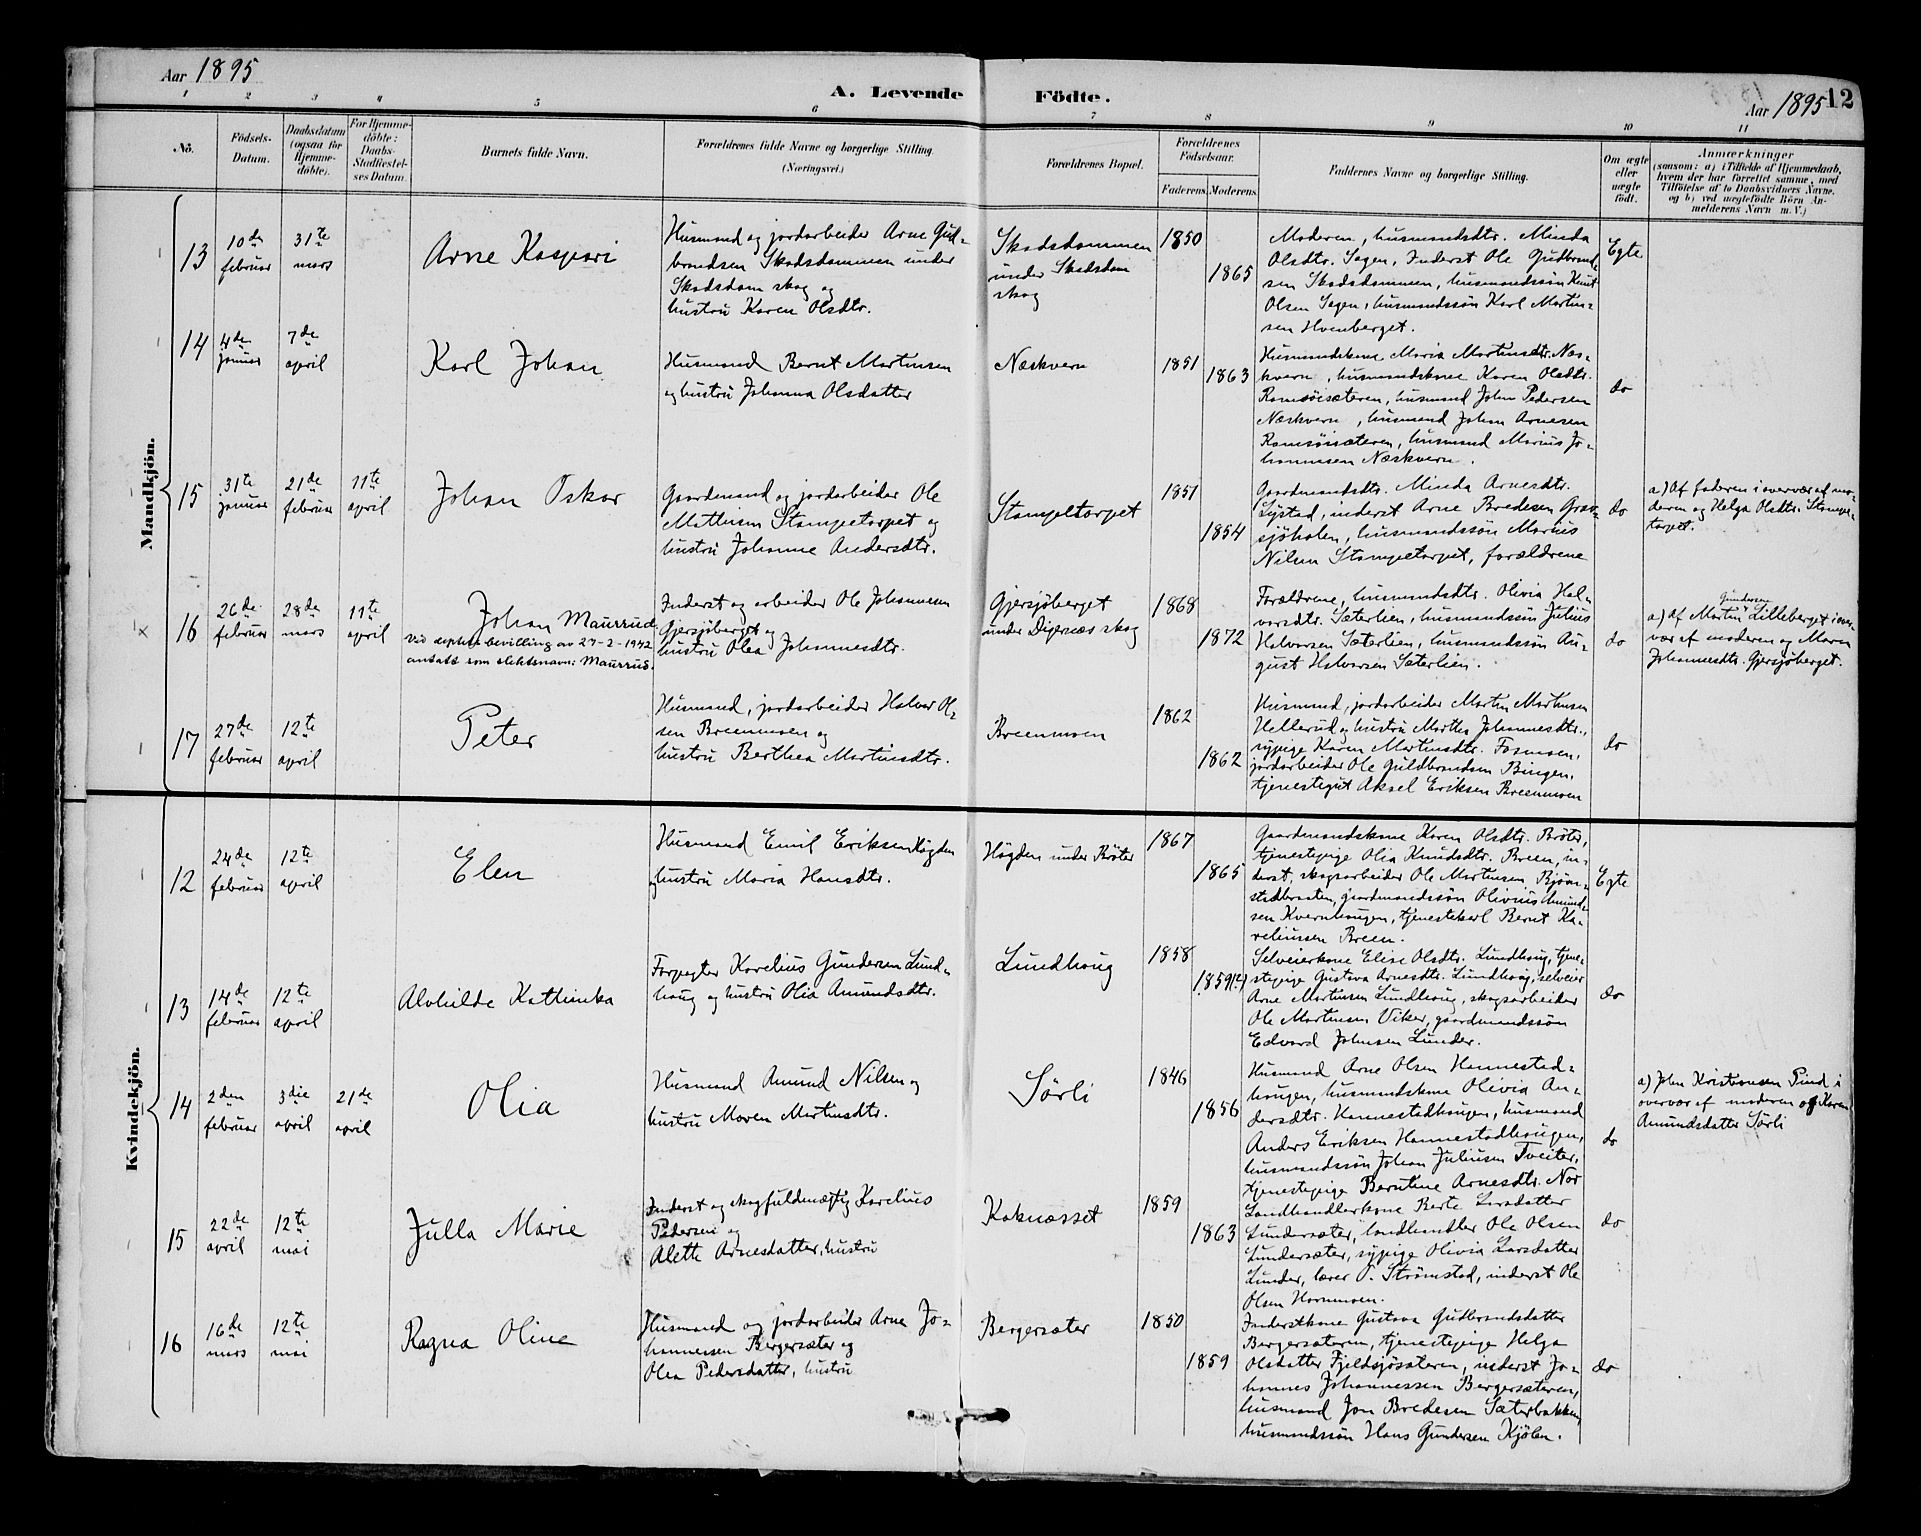 Aar 1895
A. Levende Födte.
Aar 1895 12
1 2 3 4 5 6 7 8 9 10 11
No.
Födsels-
Datum.
Daabsdatum
(ogsaa for
Hjemme-
döbte).
For Hjemme-
döbte:
Daabs-
Stadfæstel-
ses Datum.
Barnets fulde Navn.
Forældrenes fulde Navne og borgerlige Stilling.
(Næringsvei.)
Forældrenes Bopæl.
Forældrenes
Födselsaar.
Faderens. Moderens.
Faddernes Navne og borgerlige Stilling.
Om ægte
eller
uægte
födt.
Anmærkninger
(saasom: a) i Tilfælde af Hjemmedaab,
hvem der har forrettet samme, med
Tilföielse af to Daabsvidners Navne,
og b) ved uægtefödte Börn An-
melderens Navn m. V.)
Mandkjön.
13
10de
februar
31te
mars
Arne Kaspari
Husmand og jordarbeider Arne Gud-
brandsen Skadsdammen under
Skadsdam skog og
hustru Karen Olsdtr.
Skadsdammen
under Skadsdam
skog
1850
1865
Moderen, husmandsdtr. Minda
Olsdtr. Sagen, Inderst Ole Gudbrand-
sen Skadsdammen, husmandssön Knut
Olsen Sagen, husmandssön Karl Martin-
sen Hvenberget.
Egte
14
4de
januar
7de
april
Karl Johan
Husmand Bernt Martinsen
og hustru Johanna Olsdatter
Næskvern
1851
1863
Husmandskone Maria Martinsdtr. Næs-
kvern, husmandskone Karen Olsdtr.
Ramsöisæteren, husmand John Pedersen
Næskvern, husmand Johan Arnesen
Ramsöisæteren, husmand Marius Jo-
hannesen Næskvern.
do
15
31te
januar
21de
februar
11te
april
Johan Oskar
Gaardmand og jordarbeider Ole
Mathisen Stampetorpet og
hustru Johanne Andersdtr.
Stampetorpet
1851
1854
Gaardmandsdtr. Minda Arnesdtr.
Systad, inderst Arne Bredesen Gras-
sjöholen, husmandssön Marius
Nilsen Stampetorpet, forældrene
do
a) Af faderen i overvær af mo-
deren og Helga Olsdtr. Stampe-
torpet.
x 16
26de
februar
28de
mars
11te
april
Johan Maurrud
Ved depts. bevilling av 27-2-1942
antatt som slektsnavn: Maurrud.
Inderst og arbeider Ole Johannesen
Gjersjöberget og
hustru Olea Johannesdtr.
Gjersjöberget
under Digernæs skog
1868
1872
Forældrene, husmandsdtr. Olivia Hal-
vorsdtr. Sæterlien, husmandssön Julius
Halvorsen Sæterlien, husmandssön Au-
gust Halvorsen Sæterlien.
do
a) Af Martin Gundersen Lilleberget i over-
vær af moderen og Maren
Johannesdtr. Gjersjöberget.
17
27de
februar
12te
april
Peter
Husmand, jordarbeider Halvor Ol-
sen Breenmoen og
hustru Berthea Martinsdtr.
Breenmoen
1862
1862
Husmand, jordarbeider Martin Martinsen
Hellerud og hustru Marthe Johannesdtr.,
sypige Karen Martinsdtr. Fosmoen,
jordarbeider Ole Guldbrandsen Bingen,
tjenestegut Aksel Eriksen Breenmoen
do
Kvindekjön.
12
24de
februar
12te
april
Elen
Husmand Emil Eriksen Högden
og hustru Maria Hansdtr.
Högden under Bröter
1867
1865
Gaardmandskone Karen Olsdtr. Bröter,
tjenestepige Olia Knudsdtr. Breen, in-
derst, skogsarbeider Ole Martinsen Bjöm-
stadbraaten, gaardmandssön Olivius Amund-
sen Kvernhaugen, tjenestekarl Bernt Ka-
reliussen Breen.
Egte
13
14de
februar
12te
april
Alvhilde Kathinka
Forpagter Karelius Gundersen Lund-
haug og hustru Olia Amundsdtr.
Lundhaug
1858
1859(?)
Selveierkone Elise Olsdtr. Lundhaug, tjene-
stepige Gustava Arnesdtr. Lundhaug, selveier
Arne Martinsen Lundhaug, skogsarbeider
Ole Martinsen Viker, gaardmandssön
Edvard Johnsen Lunder.
do
14
2den
februar
3die
april
21de
april
Olia
Husmand Amund Nilsen og
hustru Maren Martinsdtr.
Sørli
1846
1856
Husmand Arne Olsen Hannestad-
haugen, husmandskone Olivia An-
dersdtr. Hannestadhaugen, husmand
Anders Eriksen Hannestadhaugen,
husmandssön Johan Juliusen Tveiter,
tjenestepige Berntine Arnesdtr. Nor
do
a) John Kristiansen Sund i
overvær af moderen og Karen
Amundsdatter Sørli
15
22de
april
12te
mai
Julla Marie
Inderst og skogfuldmægtig Karelius
Pedersen og
Alette Arnesdatter, hustru
Kaknæsset
1859
1863
Landhandlerkone Berte Larsdatter
Lundersæter, landhandler Ole Olsen
Lundersæter, sypige Olivia Larsdatter
Lunder, lærer O. Strømstad, inderst Ole
Olsen Hornmoen.
do
16
16de
mars
12te
mai
Ragna Oline
Husmand og jordarbeider Arne Jo-
hannesen Bergersæter og
Olea Pedersdatter, hustru
Bergersæter
1850
1859
Inderstkone Gustava Gudbrandsdatter
Bergersæteren, tjenestepige Helga
Olsdatter Fjeldsjösæteren, inderst Jo-
hannes Johannessen Bergersæteren,
husmand Jon Bredesen Sæterbakken,
husmandssön Hans Gundersen Kjölen.
do